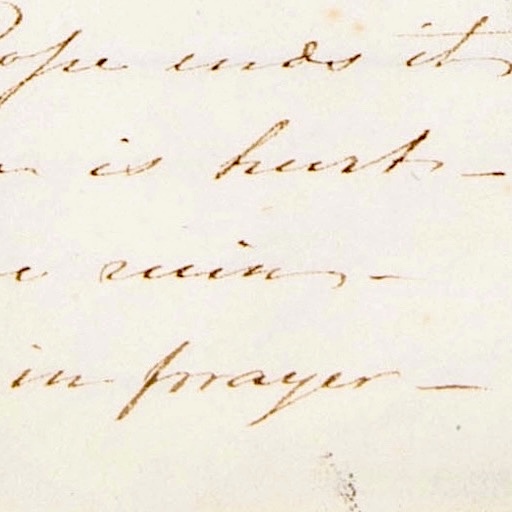 ends it
is hurt –
ruin –
in prayer –